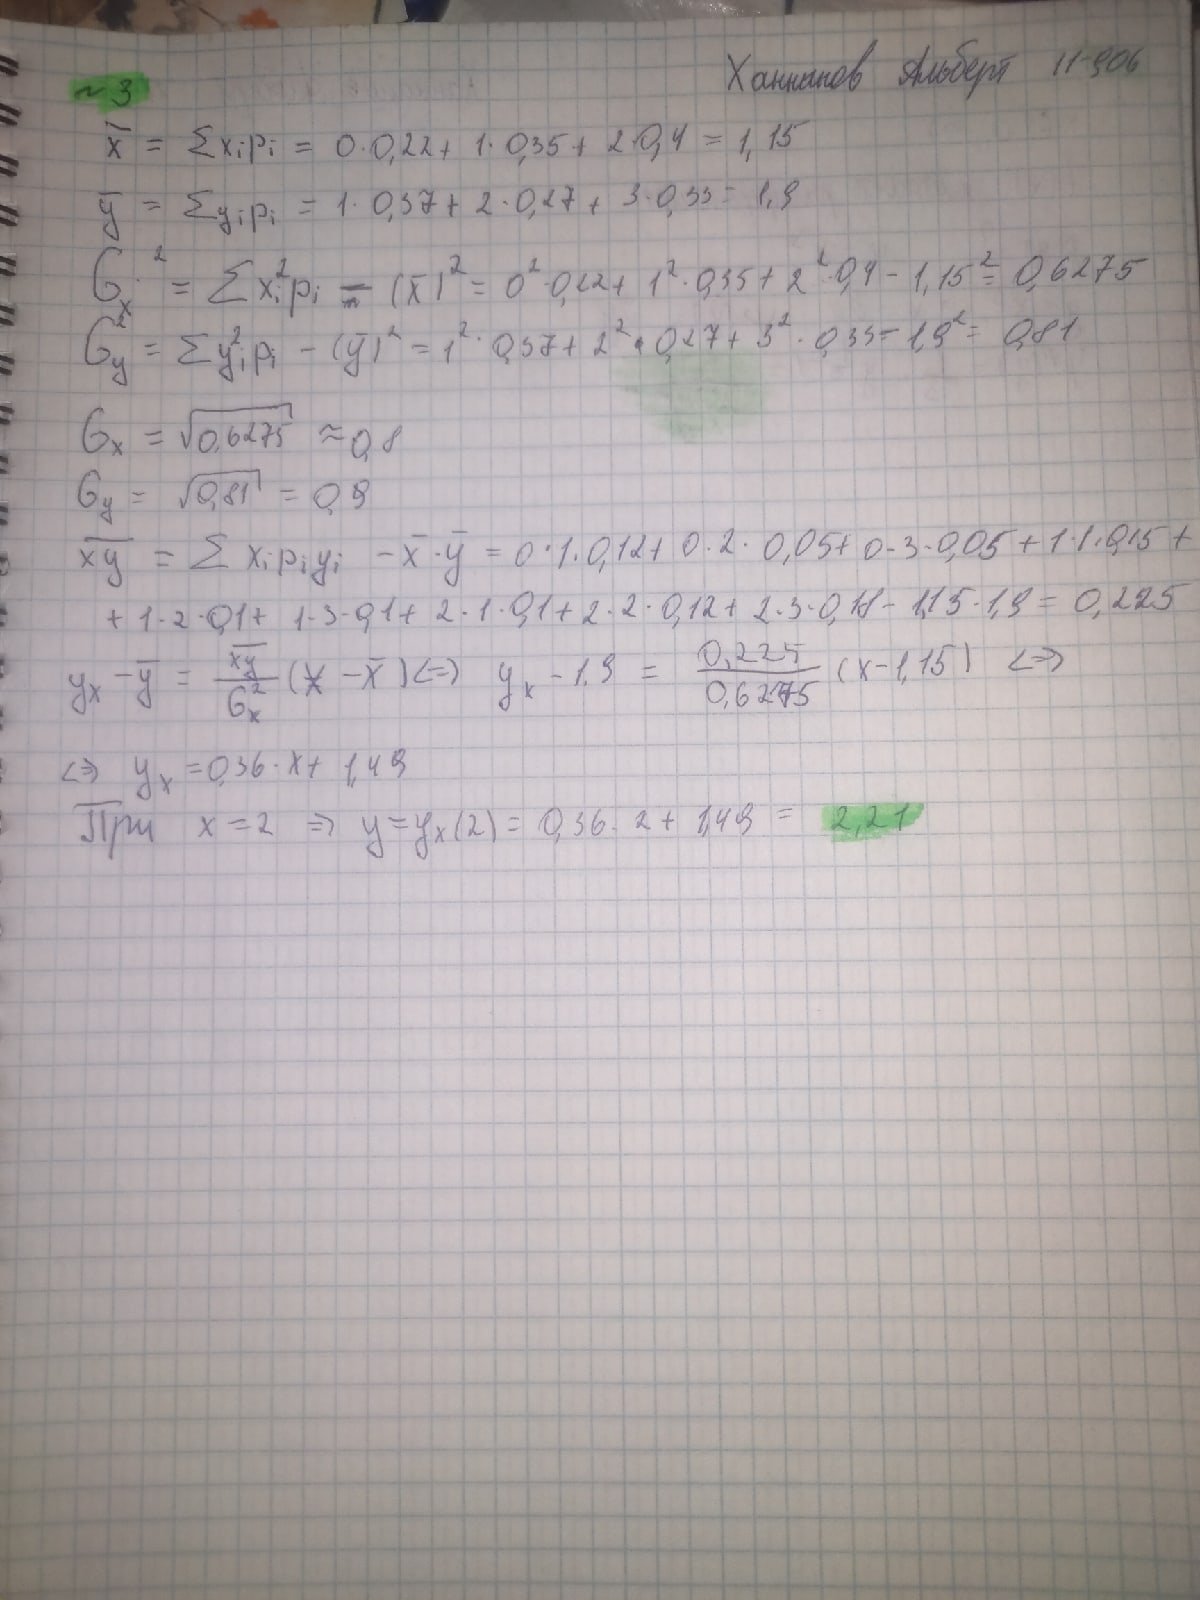 Ханнанов Альберт 11-906
~3
x̅ = Σxᵢpᵢ = 0·0,22+ 1·0,35+ 2·0,4 = 1,15
y̅ = Σyᵢpᵢ = 1·0,37+ 2·0,27+ 3·0,33= 1,9
Gₓ² = Σxᵢ²pᵢ - (x̅)² = 0²·0,22+ 1²·0,35+ 2²·0,4 - 1,15² = 0,6275
G_y² = Σyᵢ²pᵢ - (y̅)² = 1²·0,37+ 2²·0,27+ 3²·0,33- 1,9² = 0,81
Gₓ = √0,6275 ≈ 0,8
G_y = √0,81 = 0,9
x̅y̅ = Σ xᵢpᵢyᵢ - x̅·y̅ = 0·1·0,12+ 0·2·0,05+ 0·3·0,05 + 1·1·0,15 +
+ 1·2·0,1+ 1·3·0,1+ 2·1·0,1+ 2·2·0,12+ 2·3·0,18 - 1,15·1,9 = 0,225
yₓ - y̅ = x̅y̅/Gₓ² (x - x̅) <=> yₓ - 1,9 = 0,225/0,6275 (x - 1,15) <=>
<=> yₓ = 0,36·x + 1,49
При x = 2 => y = yₓ(2) = 0,36·2 + 1,49 = 2,21